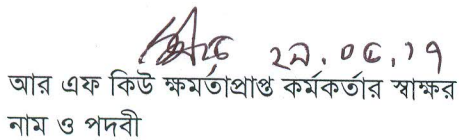 ২৯.০৫.১৭
আর এফ কিউ ক্ষমতাপ্রাপ্ত কর্মকর্তার স্বাক্ষর
নাম ও পদবী